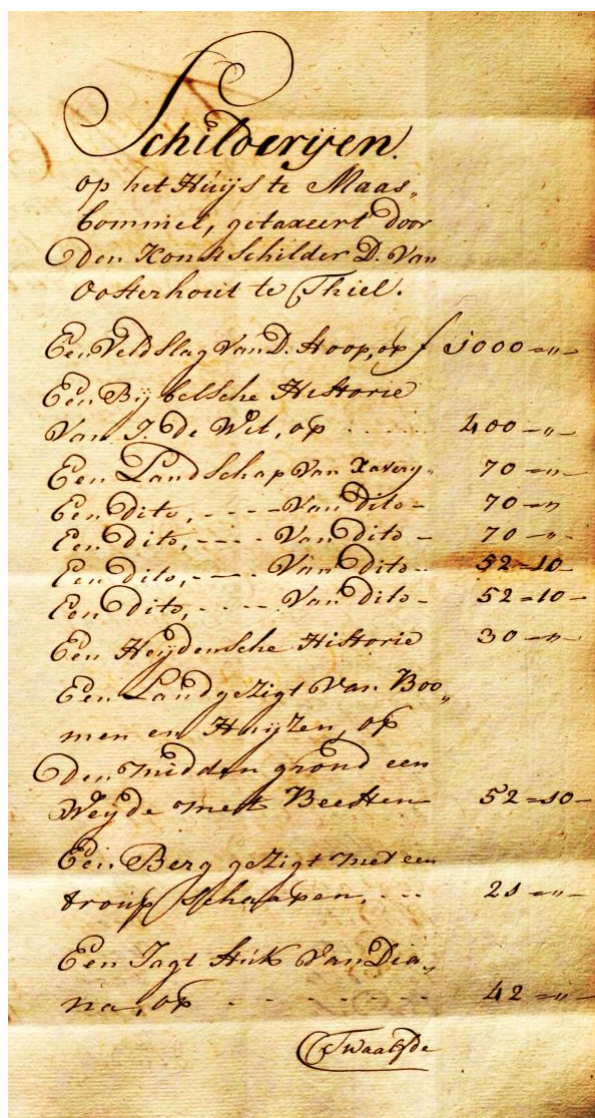 Schilderijen.
op het Huijs te Maas„
bommel, getaxeert door
Den Konstschilder D. Van
Oosterhout te Thiel.
Een Veldslag Van D. Hoop, op f 1000 =„=
Een Bijbelsche Historie
Van J. De Wit, op ..... 400 -„-
Een Landschap Van Xavery„ 70 =„=
Een dito, ---- Van dito - 70 =„
Een dito, ---- Van dito - 70 =„-
Een dito, ---- Van dito - 52=10-
Een dito, ---- Van dito - 52=10-
Een Heijdensche Historie 30 -„-
Een Landgezigt Van Boo„
men en Huijzen, op
Den midden grond een
Weijde mett Beesten 52=10-
Een Berg gezigt met een
troup Schaapen, ... 21 =„-
Een Jagt Stuk Van Dia„
na, op ------ 42 =„-
Twaalfde